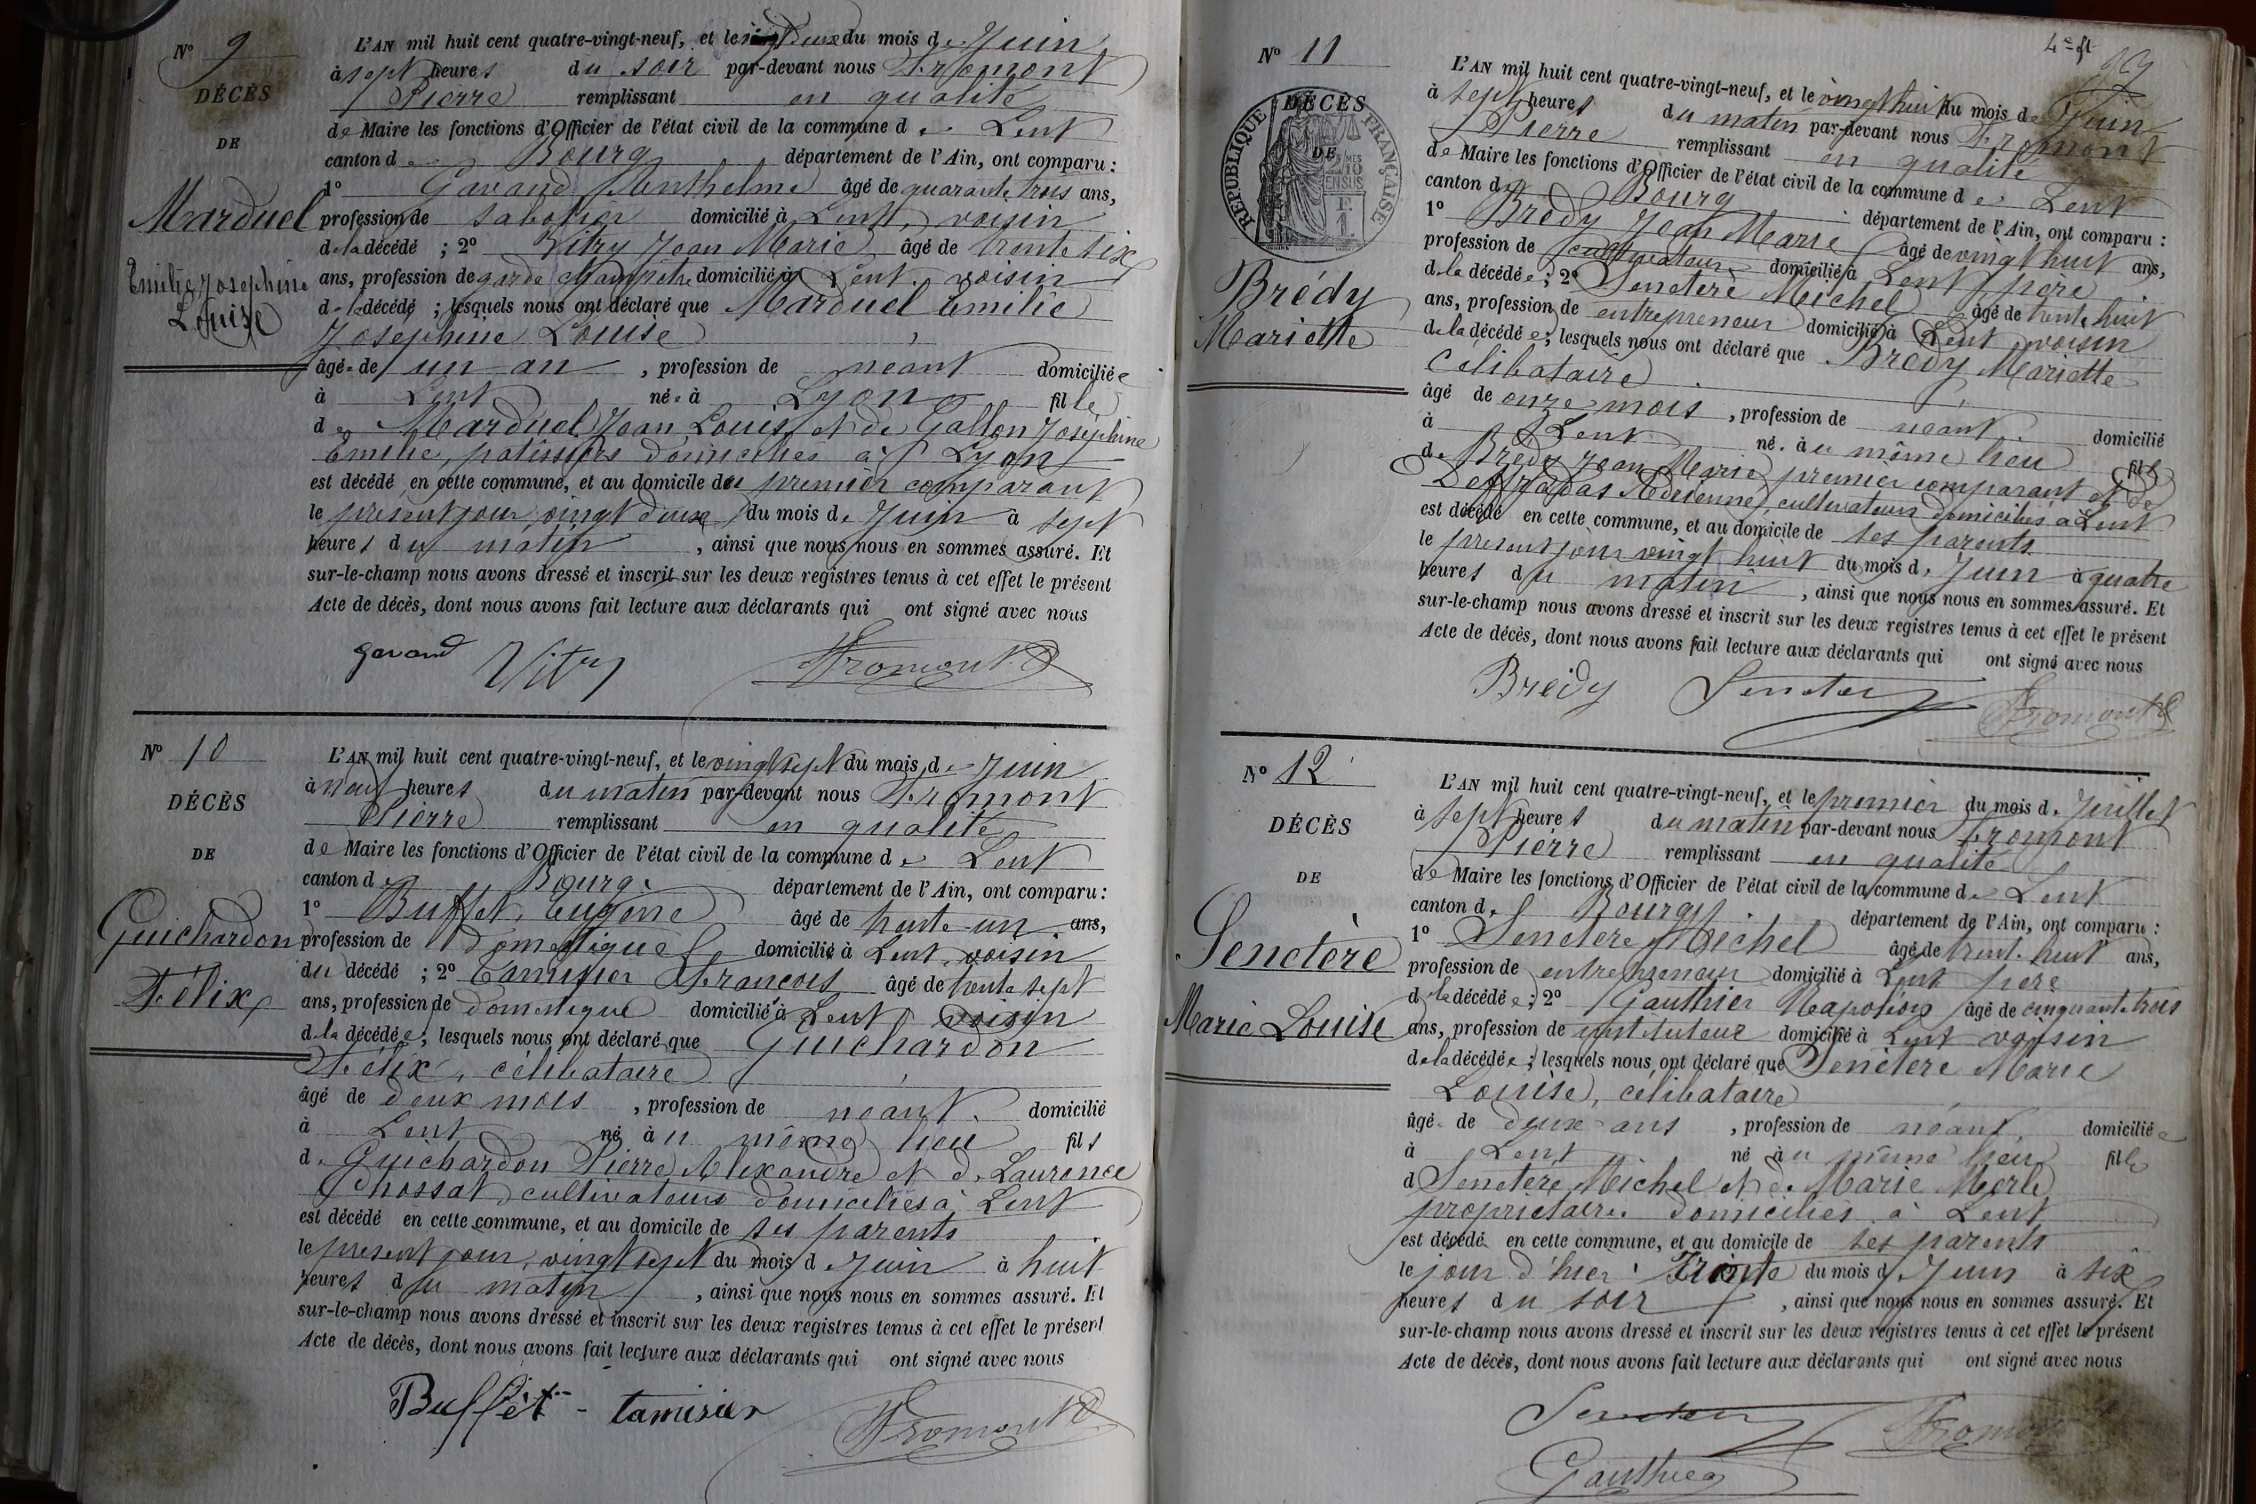 N° 9
DÉCÈS
DE
Marduel
Emilie Josephine
Louise
L'AN mil huit cent quatre-vingt-neuf, et le vingt deux du mois de Juin
à sept heures du soir par-devant nous Fromont
Pierre remplissant en qualité
de Maire les fonctions d'Officier de l'état civil de la commune de Lent
canton de Bourg département de l'Ain, ont comparu :
1° Gavand Anthelme âgé de quarante trois ans,
profession de sabotier domicilié à Lent, voisin
de la décédé ; 2° Vitry Jean Marie âgé de trente six
ans, profession de garde champêtre domicilié à Lent voisin
de la décédé ; lesquels nous ont déclaré que Marduel Emilie
Josephine Louise
âgée de un an , profession de néant domiciliée
à Lent née à Lyon fille
de Marduel Jean Louis et de Gallon Joséphine
Emilie, patissiers domiciliés à Lyon
est décédé en cette commune, et au domicile du premier comparant
le présent jour vingt deux du mois de Juin à sept
heures du matin , ainsi que nous nous en sommes assuré. Et
sur-le-champ nous avons dressé et inscrit sur les deux registres tenus à cet effet le présent
Acte de décès, dont nous avons fait lecture aux déclarants qui ont signé avec nous
Gavand Vitry Fromont
N° 10
DÉCÈS
DE
Guichardon
Félix
L'AN mil huit cent quatre-vingt-neuf, et le vingt sept du mois de Juin
à neuf heures du matin par-devant nous Fromont
Pierre remplissant en qualité
de Maire les fonctions d'Officier de l'état civil de la commune de Lent
canton de Bourg département de l'Ain, ont comparu :
1° Buffet Eugène âgé de trente-un ans,
profession de domestique domicilié à Lent, voisin
du décédé ; 2° Tamisier François âgé de trente sept
ans, profession de domestique domicilié à Lent voisin
de la décédée ; lesquels nous ont déclaré que Guichardon
Félix, célibataire
âgé de deux mois , profession de néant. domicilié
à Lent né au même lieu fils
de Guichardon Pierre Alexandre et de Laurence
Chossat cultivateurs domiciliés à Lent
est décédé en cette commune, et au domicile de ses parents
le présent jour, vingt sept du mois de Juin à huit
heures du matin , ainsi que nous nous en sommes assuré. Et
sur-le-champ nous avons dressé et inscrit sur les deux registres tenus à cet effet le présent
Acte de décès, dont nous avons fait lecture aux déclarants qui ont signé avec nous
Buffet - tamisier Fromont
4e ft
N° 11
DÉCÈS
DE
RÉPUBLIQUE FRANÇAISE
Brédy
Mariette
L'AN mil huit cent quatre-vingt-neuf, et le vingt huit du mois de Juin
à sept heures du matin par-devant nous Fromont
Pierre remplissant en qualité
de Maire les fonctions d'Officier de l'état civil de la commune de Lent
canton de Bourg département de l'Ain, ont comparu :
1° Brédy Jean Marie âgé de vingt huit ans,
profession de cultivateur domicilié à Lent père
de la décédée ; 2° Senetère Michel âgé de trente huit
ans, profession de entrepreneur domicilié à Lent voisin
de la décédée ; lesquels nous ont déclaré que Brédy Mariette
célibataire
âgé de onze mois , profession de néant. domicilié
à Lent né au même lieu fille
de Brédy Jean Marie premier comparant et de
Adrienne, cultivateurs domiciliés à Lent
est décédé en cette commune, et au domicile de ses parents
le présent jour vingt huit du mois de Juin à quatre
heures du matin , ainsi que nous nous en sommes assuré. Et
sur-le-champ nous avons dressé et inscrit sur les deux registres tenus à cet effet le présent
Acte de décès, dont nous avons fait lecture aux déclarants qui ont signé avec nous
Brédy Seneter Fromont
N° 12
DÉCÈS
DE
Senetère
Marie Louise
L'AN mil huit cent quatre-vingt-neuf, et le premier du mois de Juillet
à sept heures du matin par-devant nous Fromont
Pierre remplissant en qualité
de Maire les fonctions d'Officier de l'état civil de la commune de Lent
canton de Bourg département de l'Ain, ont comparu :
1° Senetère Michel âgé de trente huit ans,
profession de entrepreneur domicilié à Lent père
de la décédée ; 2° Gauthier Napoléon âgé de cinquante trois
ans, profession de instituteur domicilié à Lent voisin
de la décédée ; lesquels nous ont déclaré que Senetère Marie
Louise, célibataire
âgé de deux ans , profession de néant, domiciliée
à Lent né au même lieu fille
d Senetère Michel et de Marie Merle
propriétaires domiciliés à Lent
est décédé en cette commune, et au domicile de ses parents
le jour d'hier Trente du mois de Juin à six
heures du soir , ainsi que nous nous en sommes assuré. Et
sur-le-champ nous avons dressé et inscrit sur les deux registres tenus à cet effet le présent
Acte de décès, dont nous avons fait lecture aux déclarants qui ont signé avec nous
Seneter Fromont
Gauthier